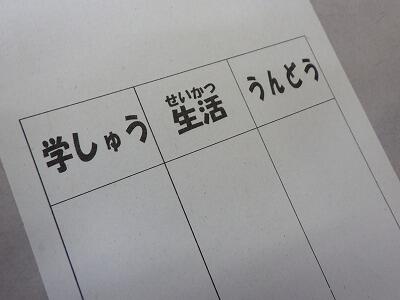 学しゅう
せいかつ
生活
うんどう